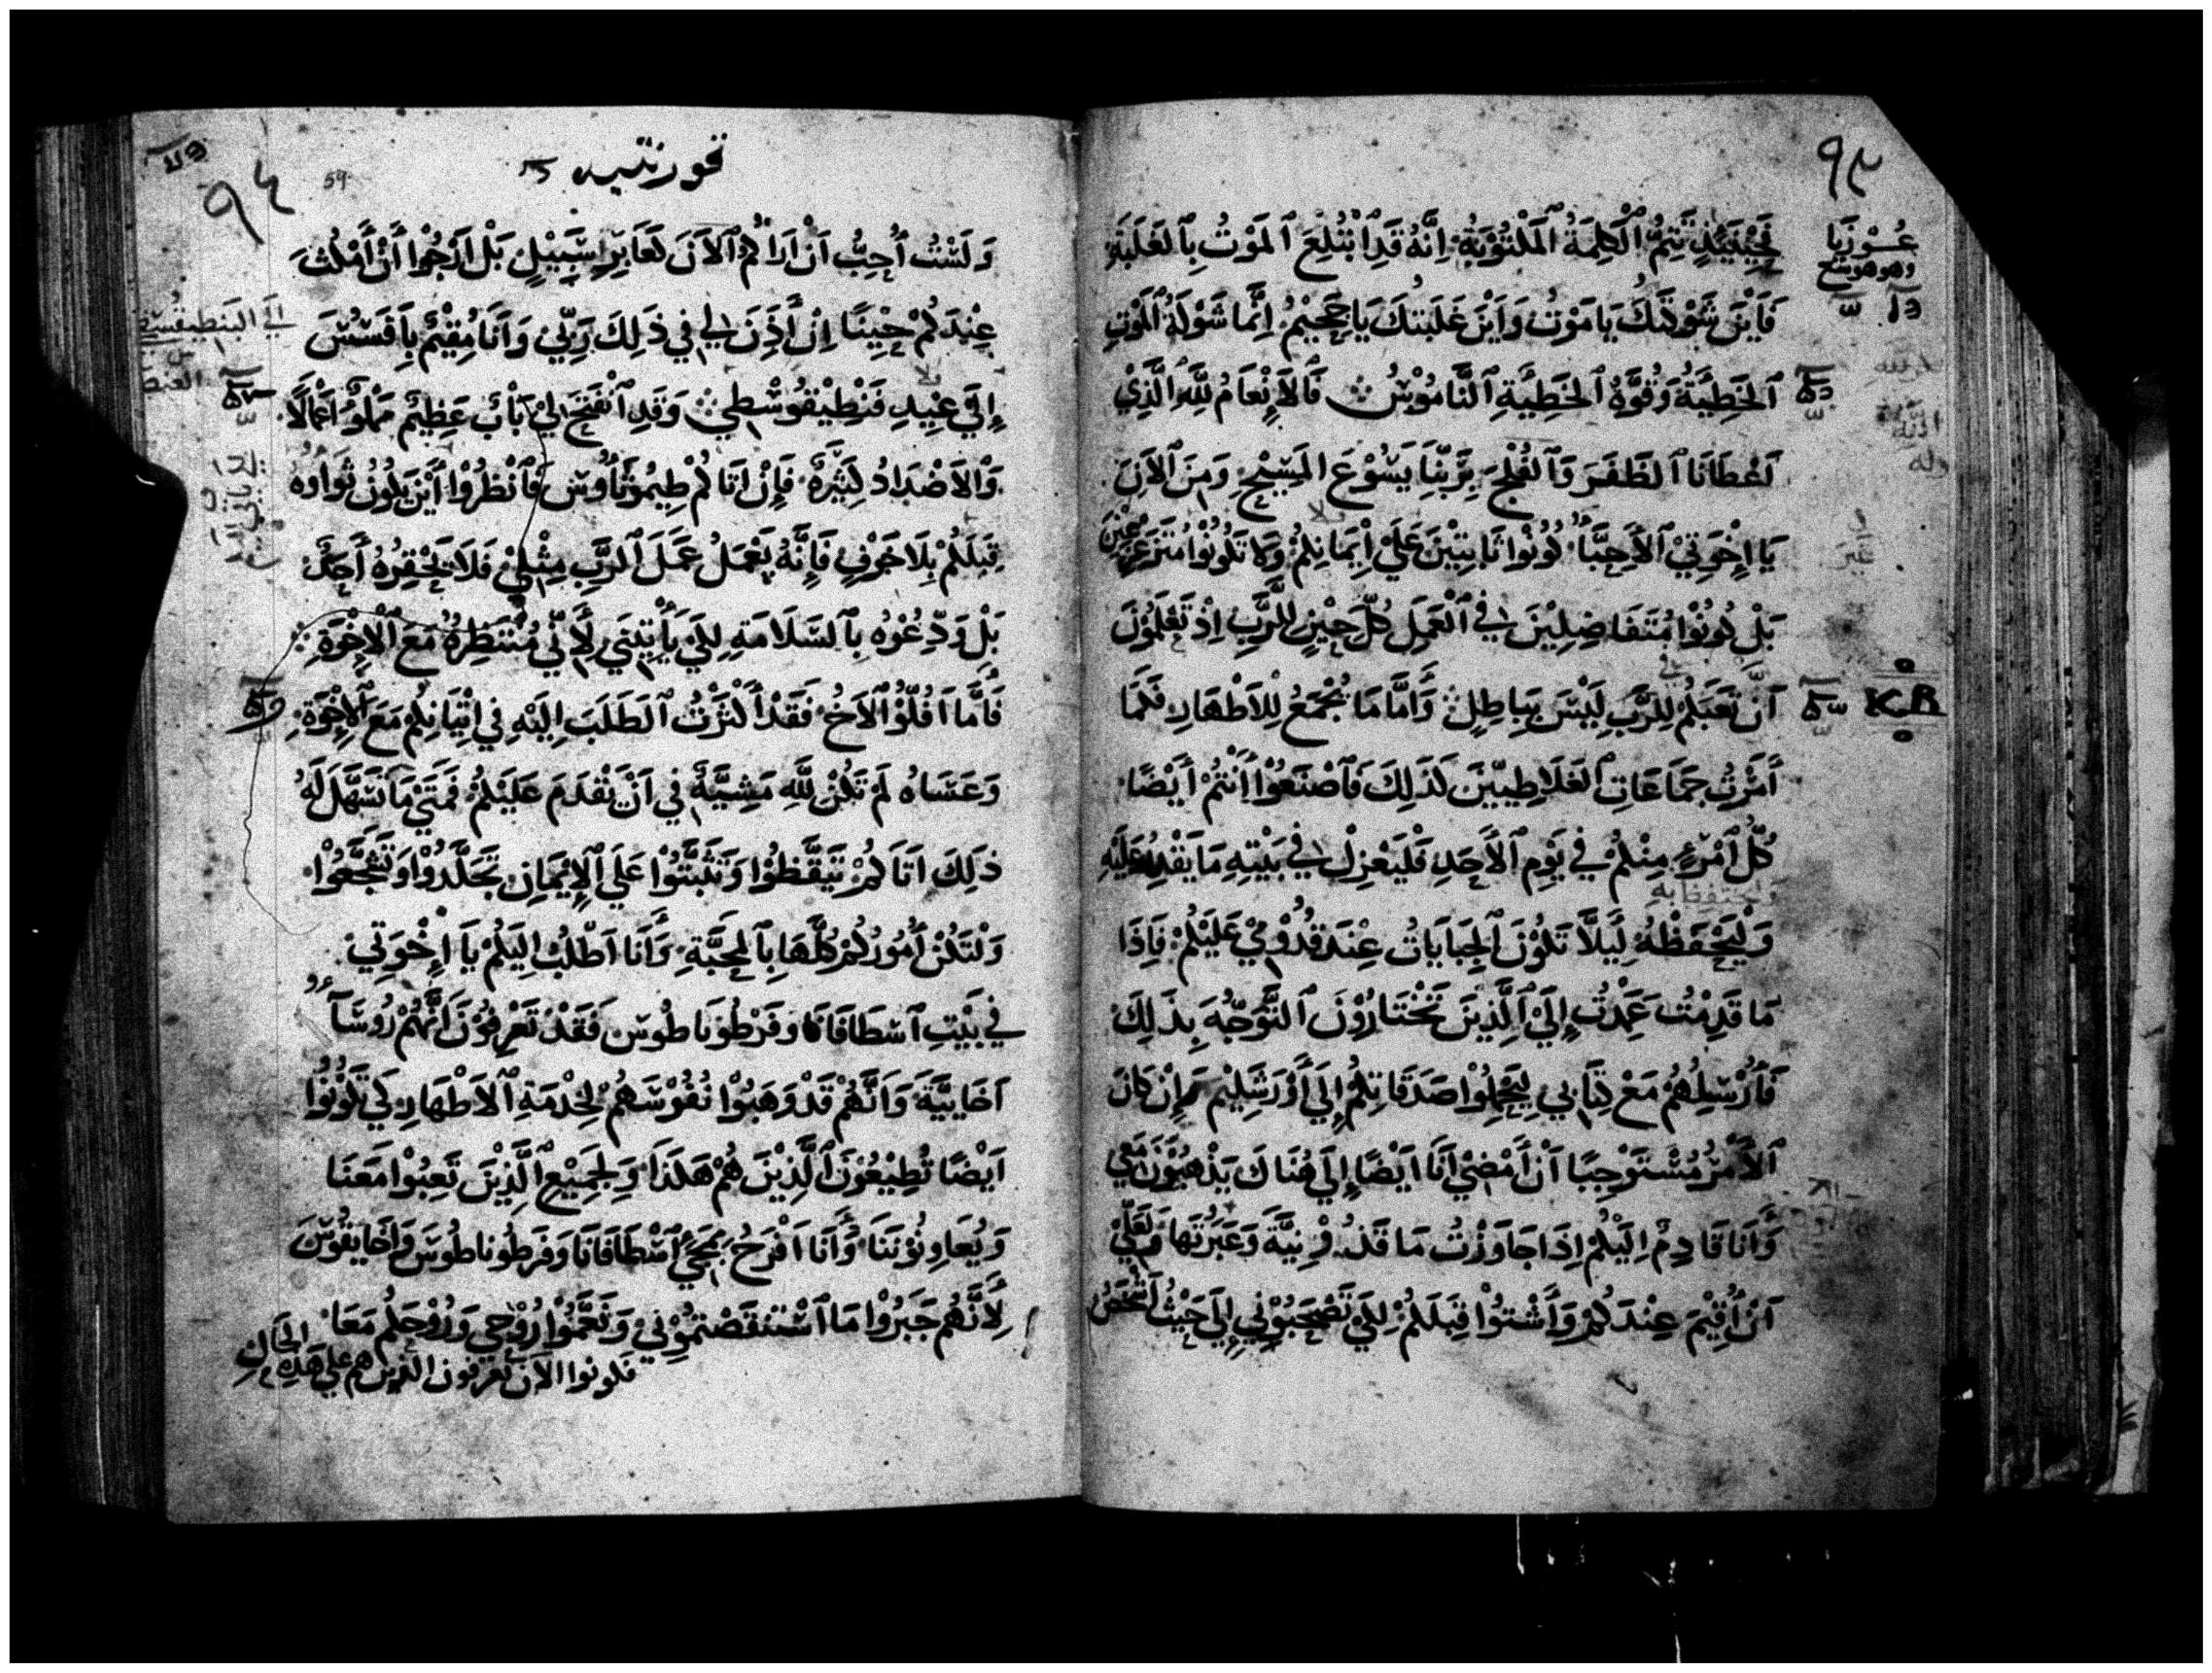 فَحِيْنَئِذٍ تَتِمُّ ٱلْكَلِمَةُ ٱلمَكْتُوْبَةُ اِنَّهُ قَدِ ٱبْتُلِعَ ٱلمَوْتُ بِٱلغَلَبَةِ
فَاَيْنَ شَوْكَتُكَ يَا مَوْتُ وَاَيْنَ غَلَبَتُكَ يَا جَحِيْمُ اِنَّمَا شَوْكَةُ ٱلمَوْتِ
ٱلخَطِيَّةُ وَقُوَّةُ ٱلخَطِيَّةِ ٱلنَّامُوْسُ فَٱلاِنْعَامُ لِلَّهِ ٱلَّذِيْ
اَعْطَانَا ٱلظَفَرَ وَٱلفُلْجَ بِرَبِّنَا يَسُوْعَ المَسِيْحِ وَمِنَ ٱلاَنَ
يَا اِخْوَتِيْ ٱلاَحِبَّا كُوْنُوا ثَابِتِيْنَ عَلَيْ اِيْمَانِكُمْ وَلا تَكُوْنُوْا مُتَزَعْزِعِيْنَ
بَلْ كُوْنُوْا مُتَفَاضِلِيْنَ فِي ٱلْعَمَلِ كُلَّ حِيْنٍ لِلرَّبِّ اِذْ تَعْلَمُوْنَ
اَنَّ تَعَبَكُمْ لِلرَّبِّ لَيْسَ بِبَاطِلٍ وَاَمَّا مَا يُجْمَعُ لِلاَطْهَارِ فَكَمَا
اَمَرْتُ جَمَاعَاتِ ٱلغَلَاطِيِّيْنَ كَذَلِكَ فَٱصْنَعُوْا اَنْتُمْ اَيْضًا
كُلُّ ٱمْرِءٍ مِنْكُمْ فِي يَوْمِ ٱلاَحَدِ فَلْيَعْزِلْ فِي بَيْتِهِ مَا يَقْدِرُ عَلَيْهِ
وَلْيَحْفَظْهُ لِيَلَّا تَكُوْنَ ٱلجِبَايَاتُ عِنْدَ قُدُوْمِيْ عَلَيْكُمْ فَاِذَا
مَا قَدِمْتُ عَمَدْتُ اِلَيْ ٱلَّذِيْنَ تَخْتَارُوْنَ ٱلتَّوَجُّهَ بِذَلِكَ
فَاُرْسِلُهُمْ مَعْ كِتَابِي لِيَحْمِلُوْا صَدَقَاتِكُمْ اِلَي اَوْرَشَلِيْمَ وَاِنْ كَانَ
ٱلاَمْرُ مُسْتَوْجِبًا اَنْ اَمْضِيْ اَنَا اَيْضًا اِلَي هُنَاكَ يَذْهَبُوْنَ مَعِي
وَاَنَا قَادِمٌ اِلَيْكُمْ اِذَا جَاوَزْتُ مَاقَدُوْنِيَّةَ وَعَبَرْتُهَا وَلَعَلِّيْ
اَنْ اُقِيْمَ عِنْدَكُمْ وَاَشْتُوْا قِبَلَكُمْ لِكَيْ تَصْحَبُوْنِي اِلَي حَيْثُ اَشْخَصُ
قورنتيه
59
وَلَسْتُ اُحِبُّ اَنْ اَرَاكُمُ ٱلاَنَ كَعَابِرِ سَبِيْلٍ بَلْ اَرْجُوْا اَنْ اَمْكُثَ
عِنْدَكُمْ حِيْنًا اِنْ اَذِنَ لِي فِي ذَلِكَ رَبِّيْ وَاَنَا مُقِيْمٌ بِاَفَسُسَ
اِلَي عِيْدِ فَنْطِيْقُوْسْطِي وَقَدِ ٱنْفَتَحَ لِيْ بَابٌ عَظِيْمٌ مَمْلُوٌ اَعْمَالًا
وَٱلاَضْدَادُ كَثِيْرَةٌ فَاِنْ اتَاكُمْ طِيْمُوْثَاوُسَ فَٱنْظُرُوْا اَيْنَ يَكُوْنُ ثَوَاوُهُ
قِبَلَكُمْ بِلَا خَوْفٍ فَاِنَّهُ يَعْمَلُ عَمَلَ ٱلرَّبِّ مِثْلِيْ فَلَا يَحْقِرُهُ اَحَدٌ
بَلْ وَدِّعُوْهُ بِٱلسَّلَامَةِ لِكَيْ يَأْتِيَنِي لِاَنِّي مُنْتَظِرُهُ مَعَ ٱلاِخْوَةِ
فَاَمَّا اَفُلُّوْ ٱلاَخُ فَقَدْ اَكْثَرْتُ ٱلطَلَبَ اِلَيْهِ فِي اِتْيَانِكُمْ مَعَ ٱلاِخْوَةِ
وَعَسَاهُ لَمْ تَكُنْ لِلَّهِ مَشِيَّةٌ فِي اَنْ يَقْدَمَ عَلَيْكُمْ فَمَتَيْ مَا تَسَهَّلَ لَهُ
ذَلِكَ اَتَاكُمْ تَيَقَّظُوْا وَتَثَبَّتُوْا عَلَي ٱلاِيْمَانِ تَجَلَّدُوْا وَتَشَجَّعُوْا
وَلْتَكُنْ اُمُوْرُكُمْ كُلُّهَا بِٱلمَحَبَّةِ وَاَنَا اَطْلُبُ اِلَيْكُمْ يَا اِخْوَتِي
فِي بَيْتِ ٱسْطَافَانَا وَفَرْطُوْنَاطُوْسَ فَقَدْ تَعْرِفُوْنَ اَنَّهُمْ رُوُسَآءُ
اَخَايِيَّةَ وَاَنَّهُمْ قَدْ وَهَبُوْا نُفُوْسَهُمْ لِخِدْمَةِ ٱلاَطْهَارِ لِكَي تَكُوْنُوْا
اَيْضًا تُطِيْعُوْنَ ٱلَّذِيْنَ هُمْ هَكَذَا وَلِجَمِيْعِ ٱلَّذِيْنَ تَعِبُوْا مَعَنَا
وَيُعَاوِنُوْنَنَا وَاَنَا اَفْرَحُ بِمَجِيْ ٱسْطَافَانَا وَفَرَطُوناطُوسَ وَاَخَايِقُوْسَ
لِاَنَّهُمْ جَبَرُوْا مَا ٱسْتَنْقَصْتُمُوْنِيْ وَنَعَّمُوْا رُوْحِي وَرُوْحَكُمْ مَعًا
فكونوا الآن تعرفون الذين هم علي هذه الحال